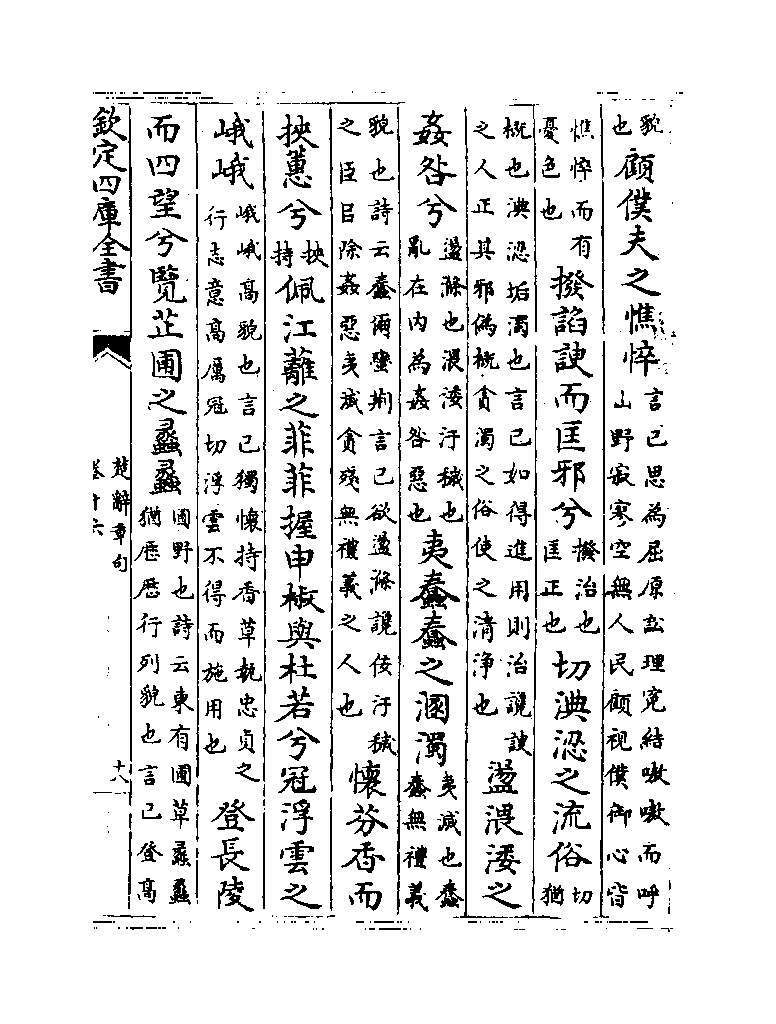 貌也顧僕夫之憔悴言己思為屈原訟理寃結嗷嗷而呼山野寂寥空無人民顧視僕御心皆
憔悴而有憂色也撥諂諛而匡邪兮撥治也匡正也切淟涊之流俗切猶
概也淟涊垢濁也言己如得進用則治讒諛之人正其邪偽概貪濁之俗使之清淨也盪渨涹之
姦咎兮盪滌也渨涹汙穢也亂在內為姦咎惡也夷蠢蠢之溷濁夷滅也蠢蠢無禮義
貌也詩云蠢爾蠻荆言己欲盪滌讒佞汙穢之臣以除姦惡夷滅貪殘無禮義之人也懷芬香而
挾蕙兮挾持佩江蘺之菲菲握申椒與杜若兮冠浮雲之
峨峨峨峨髙貌也言己獨懷持香草執忠貞之行志意髙厲冠切浮雲不得而施用也登長陵
而四望兮覽芷圃之蠡蠡圃野也詩云東有圃草蠡蠡猶歴歴行列貌也言己登髙
欽定四庫全書
楚辭章句
卷十六
十八